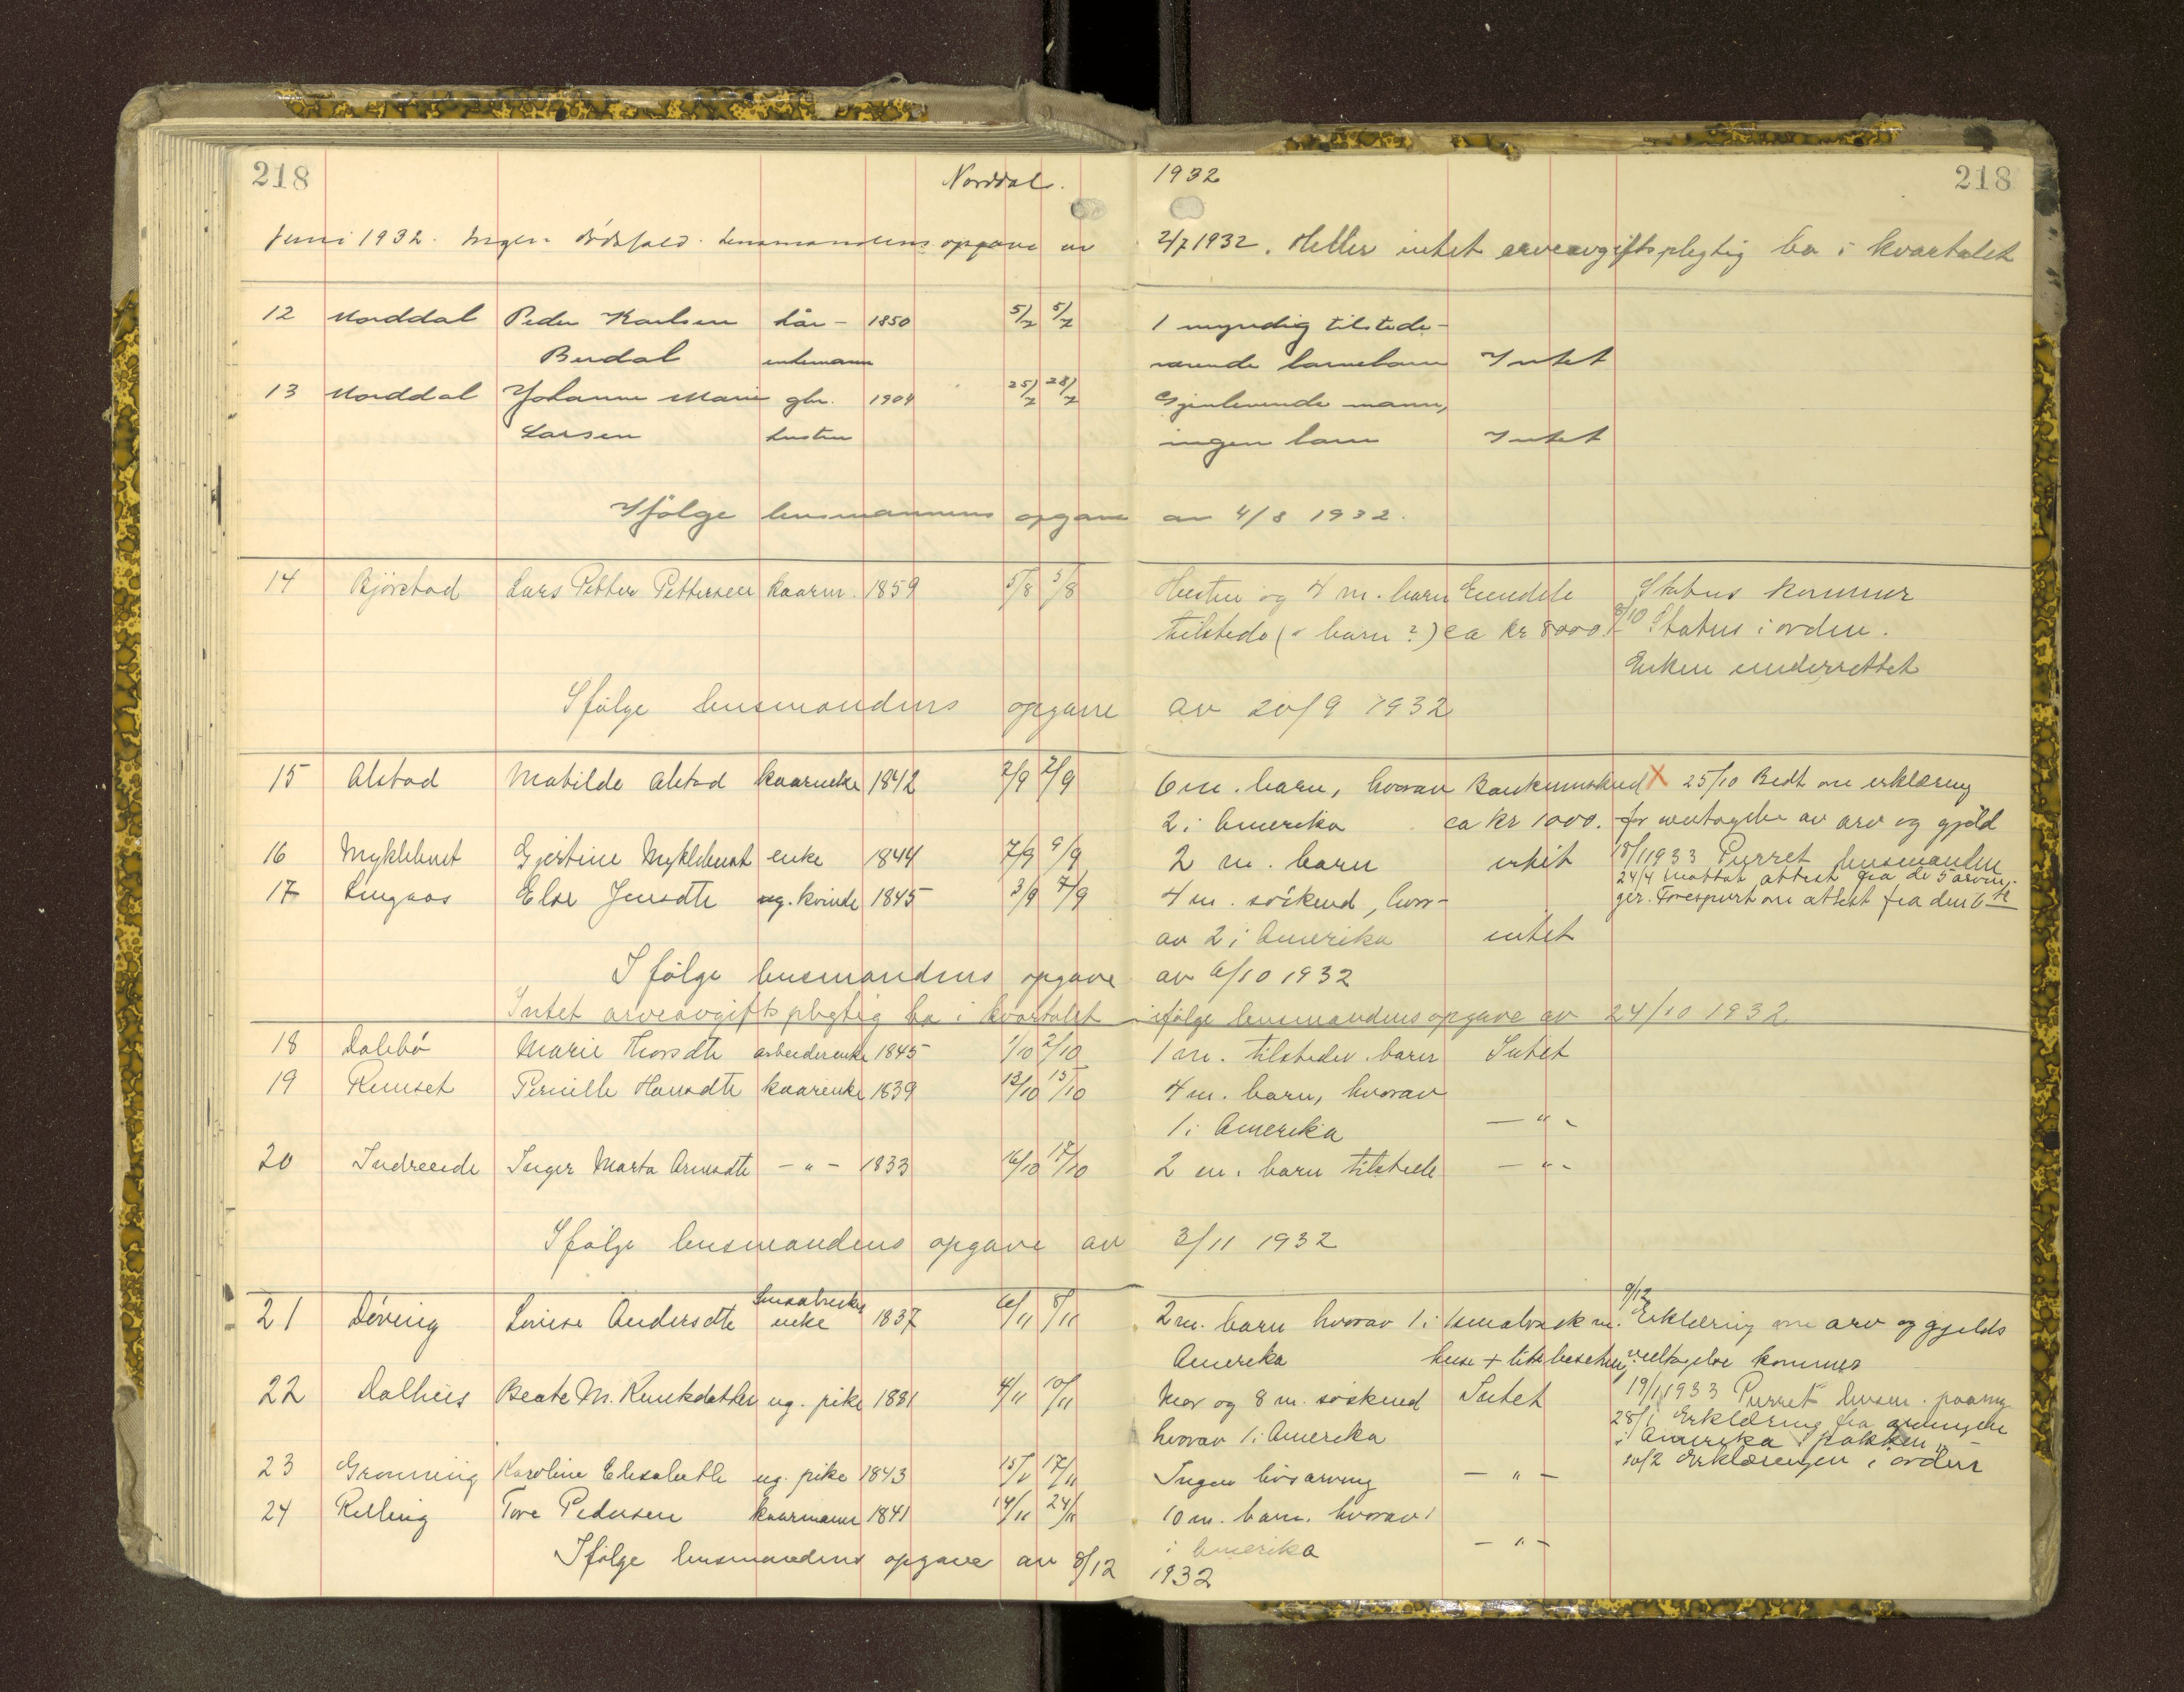 218 Norddal. 1932 218
Juni 1932. Ingen dödsfald. Lensmandens opgave av 2/7 1932. Heller intet arveavgiftspligtig bo i kvartalet
12 Norddal Peder Karlsen kår- 1850 5/7 5/7 1 myndig tilstede-
Berdal enkemann værende barnebarn Intet
13 Norddal Johanne Marie gbr. 1904 25/7 28/7 Gjenlevende mann,
Larsen hustru ingen barn Intet
Ifölge lensmannens opgave av 4/8 1932.
14 Bjørstad Lars Petter Pettersen kaarm. 1859 5/8 5/8 Hustru og 4 m. barn Eiendele Status kommer
tilstede (" barn?) ca kr 8000. 8/10 Status i orden.
Enken underrettet
Ifølge lensmandens opgave av 20/9 1932
15 Alstad Matilde Alstad kaarenke 1842 2/9 2/9 6 m. barn, hvorav Bankinnskud X 25/10 Bedt om erklæring
2 i Amerika ca kr 1000. for overtagelse av arv og gjeld
16 Myklebust Gjertine Myklebust enke 1844 7/9 9/9 2 m. barn intet 18/1 1933 Purret lensmanden
24/4 Mottat attest fra de 5 arvin-
17 Lingaas Else Jensdtr ug. kvinde 1845 3/9 7/9 4 m. söskend, hvor- ger. Forespurt om attest fra den 6te
av 2 i Amerika intet
Ifölge lensmandens opgave av 6/10 1932
Intet arveavgiftspligtig bo i kvartalet ifölge lensmandens opgave av 24/10 1932
18 Dalebö Marie Thorsdtr arbeiderenke 1845 1/10 2/10 1 m. tilstedev. barn Intet
19 Remset Pernille Hansdtr kaarenke 1839 13/10 15/10 4 m. barn, hvorav
1 i Amerika — " -
20 Indreeide Inger Marta Arnesdtr — " — 1833 16/10 17/10 2 m. barn tilstede — " -
Ifølge lensmandens opgave av 3/11 1932
21 Døving Lovise Andersdtr enke 1837 6/11 8/11 2 m. barn hvorav 1 i 9/12 Erklæring om arv og gjelds
Amerika huse + litt vedtagelse kommer
22 Dalhus Beate M. Knutsdatter ug. pike 1881 4/11 10/11 Mor og 8 m. söskend Intet 19/1 1933 Purret lensm. paany
hvorav 1 i Amerika 28/1 Erklæring fra arvingen
i Amerika i pakken.
23 Grønning Karoline Elisabeth ug. pike 1843 15/11 17/11 Ingen livsarving — " — 10/2 Erklæringen i orden
24 Relling Tore Pedersen kaarmann 1841 14/11 24/11 10 m. barn, hvorav 1
i Amerika — " —
Ifølge lensmandens opgave av 8/12 1932